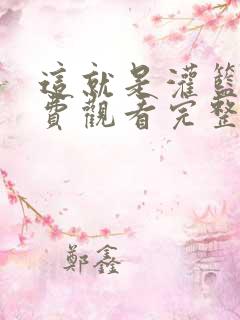 這就是灌籃
費觀看完整
鄭鑫